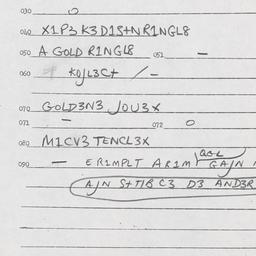 030 O
040 X1P3 K3 D1S+NR1NGL8
050 A GOLD R1NGL8 051 —
060 KOJL3C+ / -
070 GOLD3N3 JOU3X
071 — 072 O
080 M1CV3 TENCL3X
090 — ER1MPLT AR1M GAJN
AJN S++1B C3 D3 AND3R